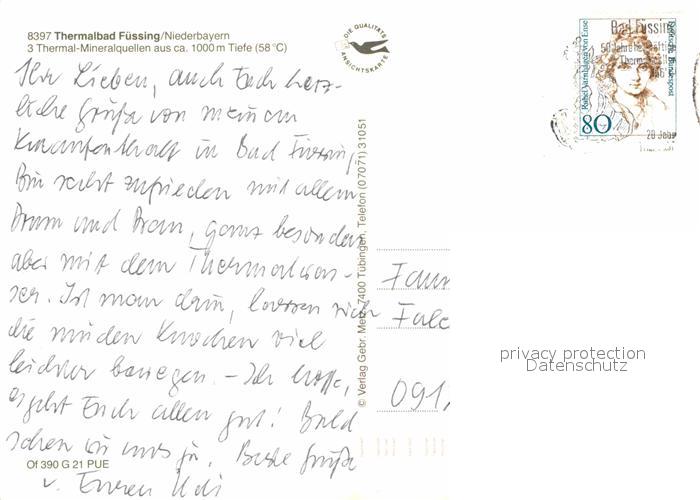 8397 Thermalbad Füssing/Niederbayern
3 Thermal-Mineralquellen aus ca. 1000 m Tiefe (58°C)
DIE QUALITÄTS
ANSICHTSKARTE
Ihr Lieben, auch Euch herz-
liche Grüße von meinem
in Bad Füssing
Bin sehr zufrieden mit allem
Drum und Dran, ganz besonders
aber mit dem Thermalwas-
ser. Ist man drin, lassen sich
die müden Knochen viel
leichter bewegen. – Ich hoffe,
es geht Euch allen gut! Bald
sehen wir uns ja. Beste Grüße
v. Eurer
Of 390 G 21 PUE
© Verlag Gebr. Metz, 7400 Tübingen, Telefon (07071) 31051
Rahel Varnhagen von Ense
Deutsche Bundespost
80
Bad Füssing
Fam
091
privacy protection
Datenschutz